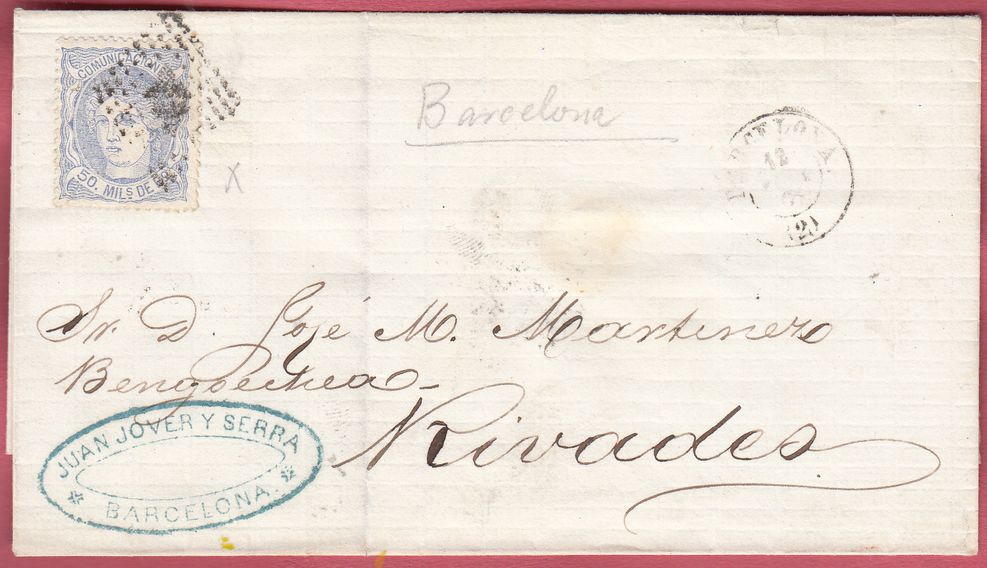 COMUNICACIONES
50. MILS DE
X
Barcelona
BARCELONA
12
(2)
Sr. D. José M. Martinez
Bengoechea
Rivadeo
JUAN JOVER Y SERRA
BARCELONA.